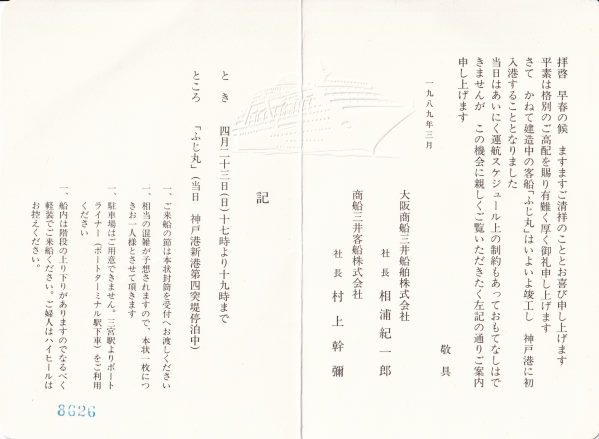 拝啓　早春の候　ますますご清祥のこととお喜び申し上げます
平素は格別のご高配を賜り有難く厚く御礼申し上げます
さて　かねて建造中の客船「ふじ丸」はいよいよ竣工し　神戸港に初
入港することとなりました
当日はあいにく運航スケジュール上の制約もあっておもてなしはで
きませんが　この機会に親しくご覧いただきたく左記の通りご案内
申し上げます
敬具
一九八九年三月
大阪商船三井船舶株式会社
社長　相浦紀一郎
商船三井客船株式会社
社長　村上幹彌
記
とき　四月二十三日(日)十七時より十九時まで
ところ　「ふじ丸」(当日　神戸港新港第四突堤停泊中)
一、ご来船の節は本状封筒を受付へお渡しください
一、相当の混雑が予想されますので、本状一枚につ
きお一人様とさせて頂きます
一、駐車場はご用意できません。三宮駅よりポート
ライナー(ポートターミナル駅下車)をご利用
ください
一、船内は階段の上り下りがありますのでなるべく
軽装でご来船ください。ご婦人はハイヒールは
お控えください。
8626